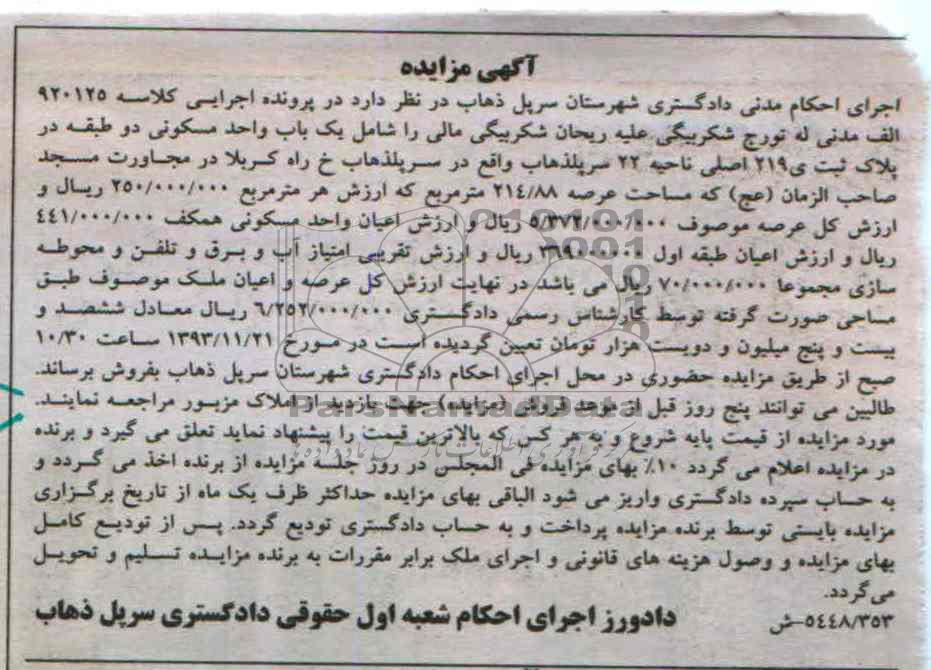 آگهی مزایده
اجرای احکام مدنی دادگستری شهرستان سرپل ذهاب در نظر دارد در پرونده اجرایی کلاسه ۹۲۰۱۲۵
الف مدنی له تورج شکربیگی علیه ریحان شکربیگی مالی را شامل یک باب واحد مسکونی دو طبقه در
پلاک ثبت ی۲۱۹ اصلی ناحیه ۲۲ سرپلذهاب واقع در سرپلذهاب خ راه کربلا در مجاورت مسجد
صاحب الزمان (عج) که مساحت عرصه ۲۱٤/۸۸ مترمربع که ارزش هر مترمربع ۲۵۰/۰۰۰/۰۰۰ ریال و
ارزش کل عرصه موصوف ۵/۳۷۲/۰۰۰/۰۰۰ ریال و ارزش اعیان واحد مسکونی همکف ٤٤۱/۰۰۰/۰۰۰
ریال و ارزش اعیان طبقه اول ۳٦۹۰۰۰۰۰۰ ریال و ارزش تقریبی امتیاز آب و برق و تلفن و محوطه
سازی مجموعا ۷۰/۰۰۰/۰۰۰ ریال می باشد در نهایت ارزش کل عرصه و اعیان ملک موصوف طبق
مساحی صورت گرفته توسط کارشناس رسمی دادگستری ٦/۲۵۲/۰۰۰/۰۰۰ ریال معادل ششصد و
بیست و پنج میلیون و دویست هزار تومان تعیین گردیده است در مورخ ۱۳۹۳/۱۱/۲۱ ساعت ۱۰/۳۰
صبح از طریق مزایده حضوری در محل اجرای احکام دادگستری شهرستان سرپل ذهاب بفروش برساند.
طالبین می توانند پنج روز قبل از موعد فروش (مزایده) جهت بازدید از املاک مزبور مراجعه نمایند.
مورد مزایده از قیمت پایه شروع و به هر کس که بالاترین قیمت را پیشنهاد نماید تعلق می گیرد و برنده
در مزایده اعلام می گردد ۱۰٪ بهای مزایده فی المجلس در روز جلسه مزایده از برنده اخذ می گردد و
به حساب سپرده دادگستری واریز می شود الباقی بهای مزایده حداکثر ظرف یک ماه از تاریخ برگزاری
مزایده بایستی توسط برنده مزایده پرداخت و به حساب دادگستری تودیع گردد. پس از تودیع کامل
بهای مزایده و وصول هزینه های قانونی و اجرای ملک برابر مقررات به برنده مزایده تسلیم و تحویل
می‌گردد.
۵٤٤۸/۳۵۳-ش
دادورز اجرای احکام شعبه اول حقوقی دادگستری سرپل ذهاب
ParsNamadData